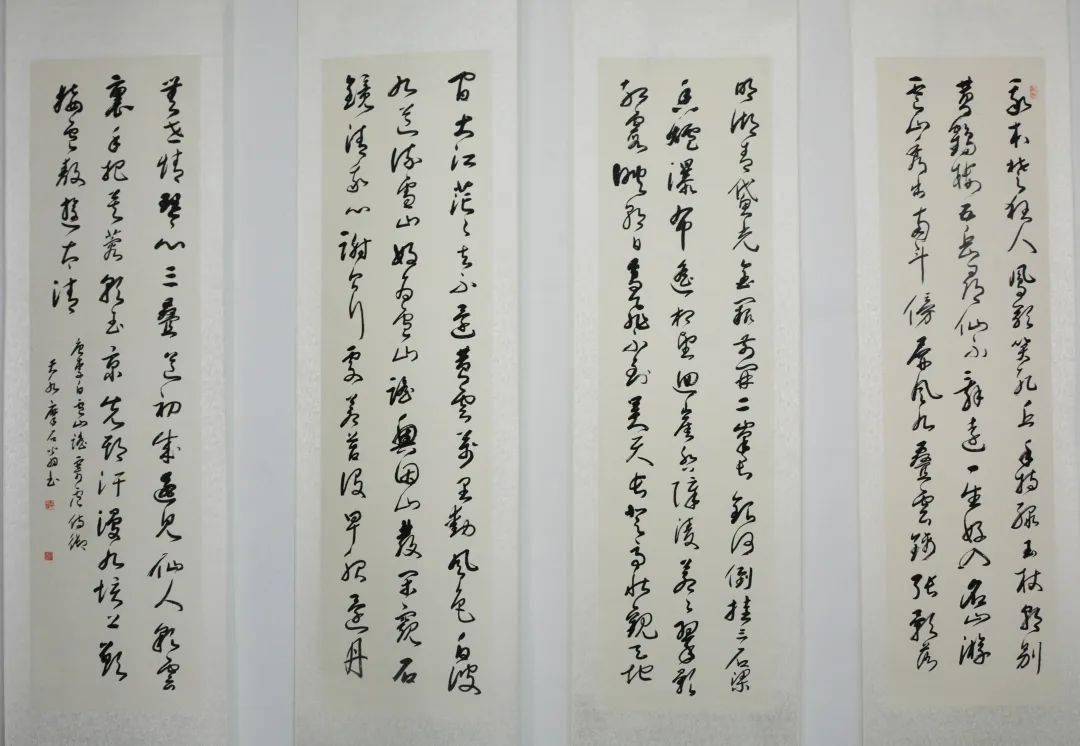 我本楚狂人鳳歌笑孔丘手持綠玉杖朝別
黃鶴樓五岳尋仙不辭遠一生好入名山游
廬山秀出南斗傍屏風九疊雲錦張影落
明湖青黛光金闕前開二峯長銀河倒挂三石梁
香爐瀑布遙相望迴崖沓障凌蒼々翠影
紅霞映朝日鳥飛不到吳天長登高壯觀天地
間大江茫々去不還黃雲萬里動風色白波
九道流雪山好為廬山謠興因山發閑窺石
鏡清我心謝公行處蒼苔沒早服還丹
無世情琴心三疊道初成遙見仙人彩雲
裏手把芙蓉朝玉京先期汗漫九垓上願
接盧敖遊太清
唐李白廬山謠寄盧侍御
摩石書